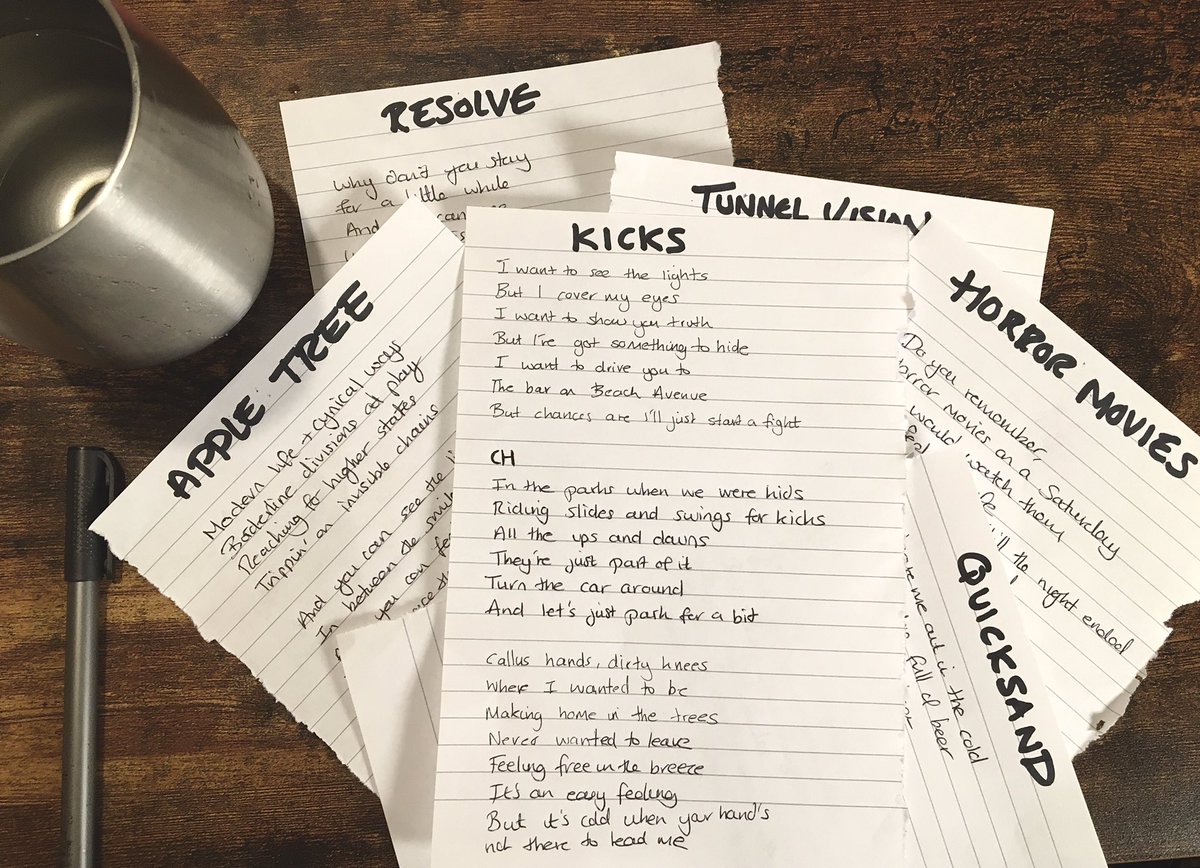 RESOLVE
Why don't you stay
for a little while
And can
TUNNEL VISION
KICKS
I want to see the lights
But I cover my eyes
I want to show you truth
But I've got something to hide
I want to drive you to
The bar on Beach Avenue
But chances are I'll just start a fight
CH
In the parks when we were kids
Riding slides and swings for kicks
All the ups and downs
They're just part of it
Turn the car around
And let's just park for a bit
Callus hands, dirty knees
Where I wanted to be
Making home in the trees
Never wanted to leave
Feeling free in the breeze
It's an easy feeling
But it's cold when your hand's
not there to lead me
APPLE TREE
Modern life + cynical ways
Borderline divisions ad play
Reaching for higher states
Trippin' on invisible chains
And you can see the
In between the smil
you can fe
HORROR MOVIES
Do you remember,
orror movies on a Saturday
would watch them
till the night ended
QUICKSAND
me out in the cold
full of beer